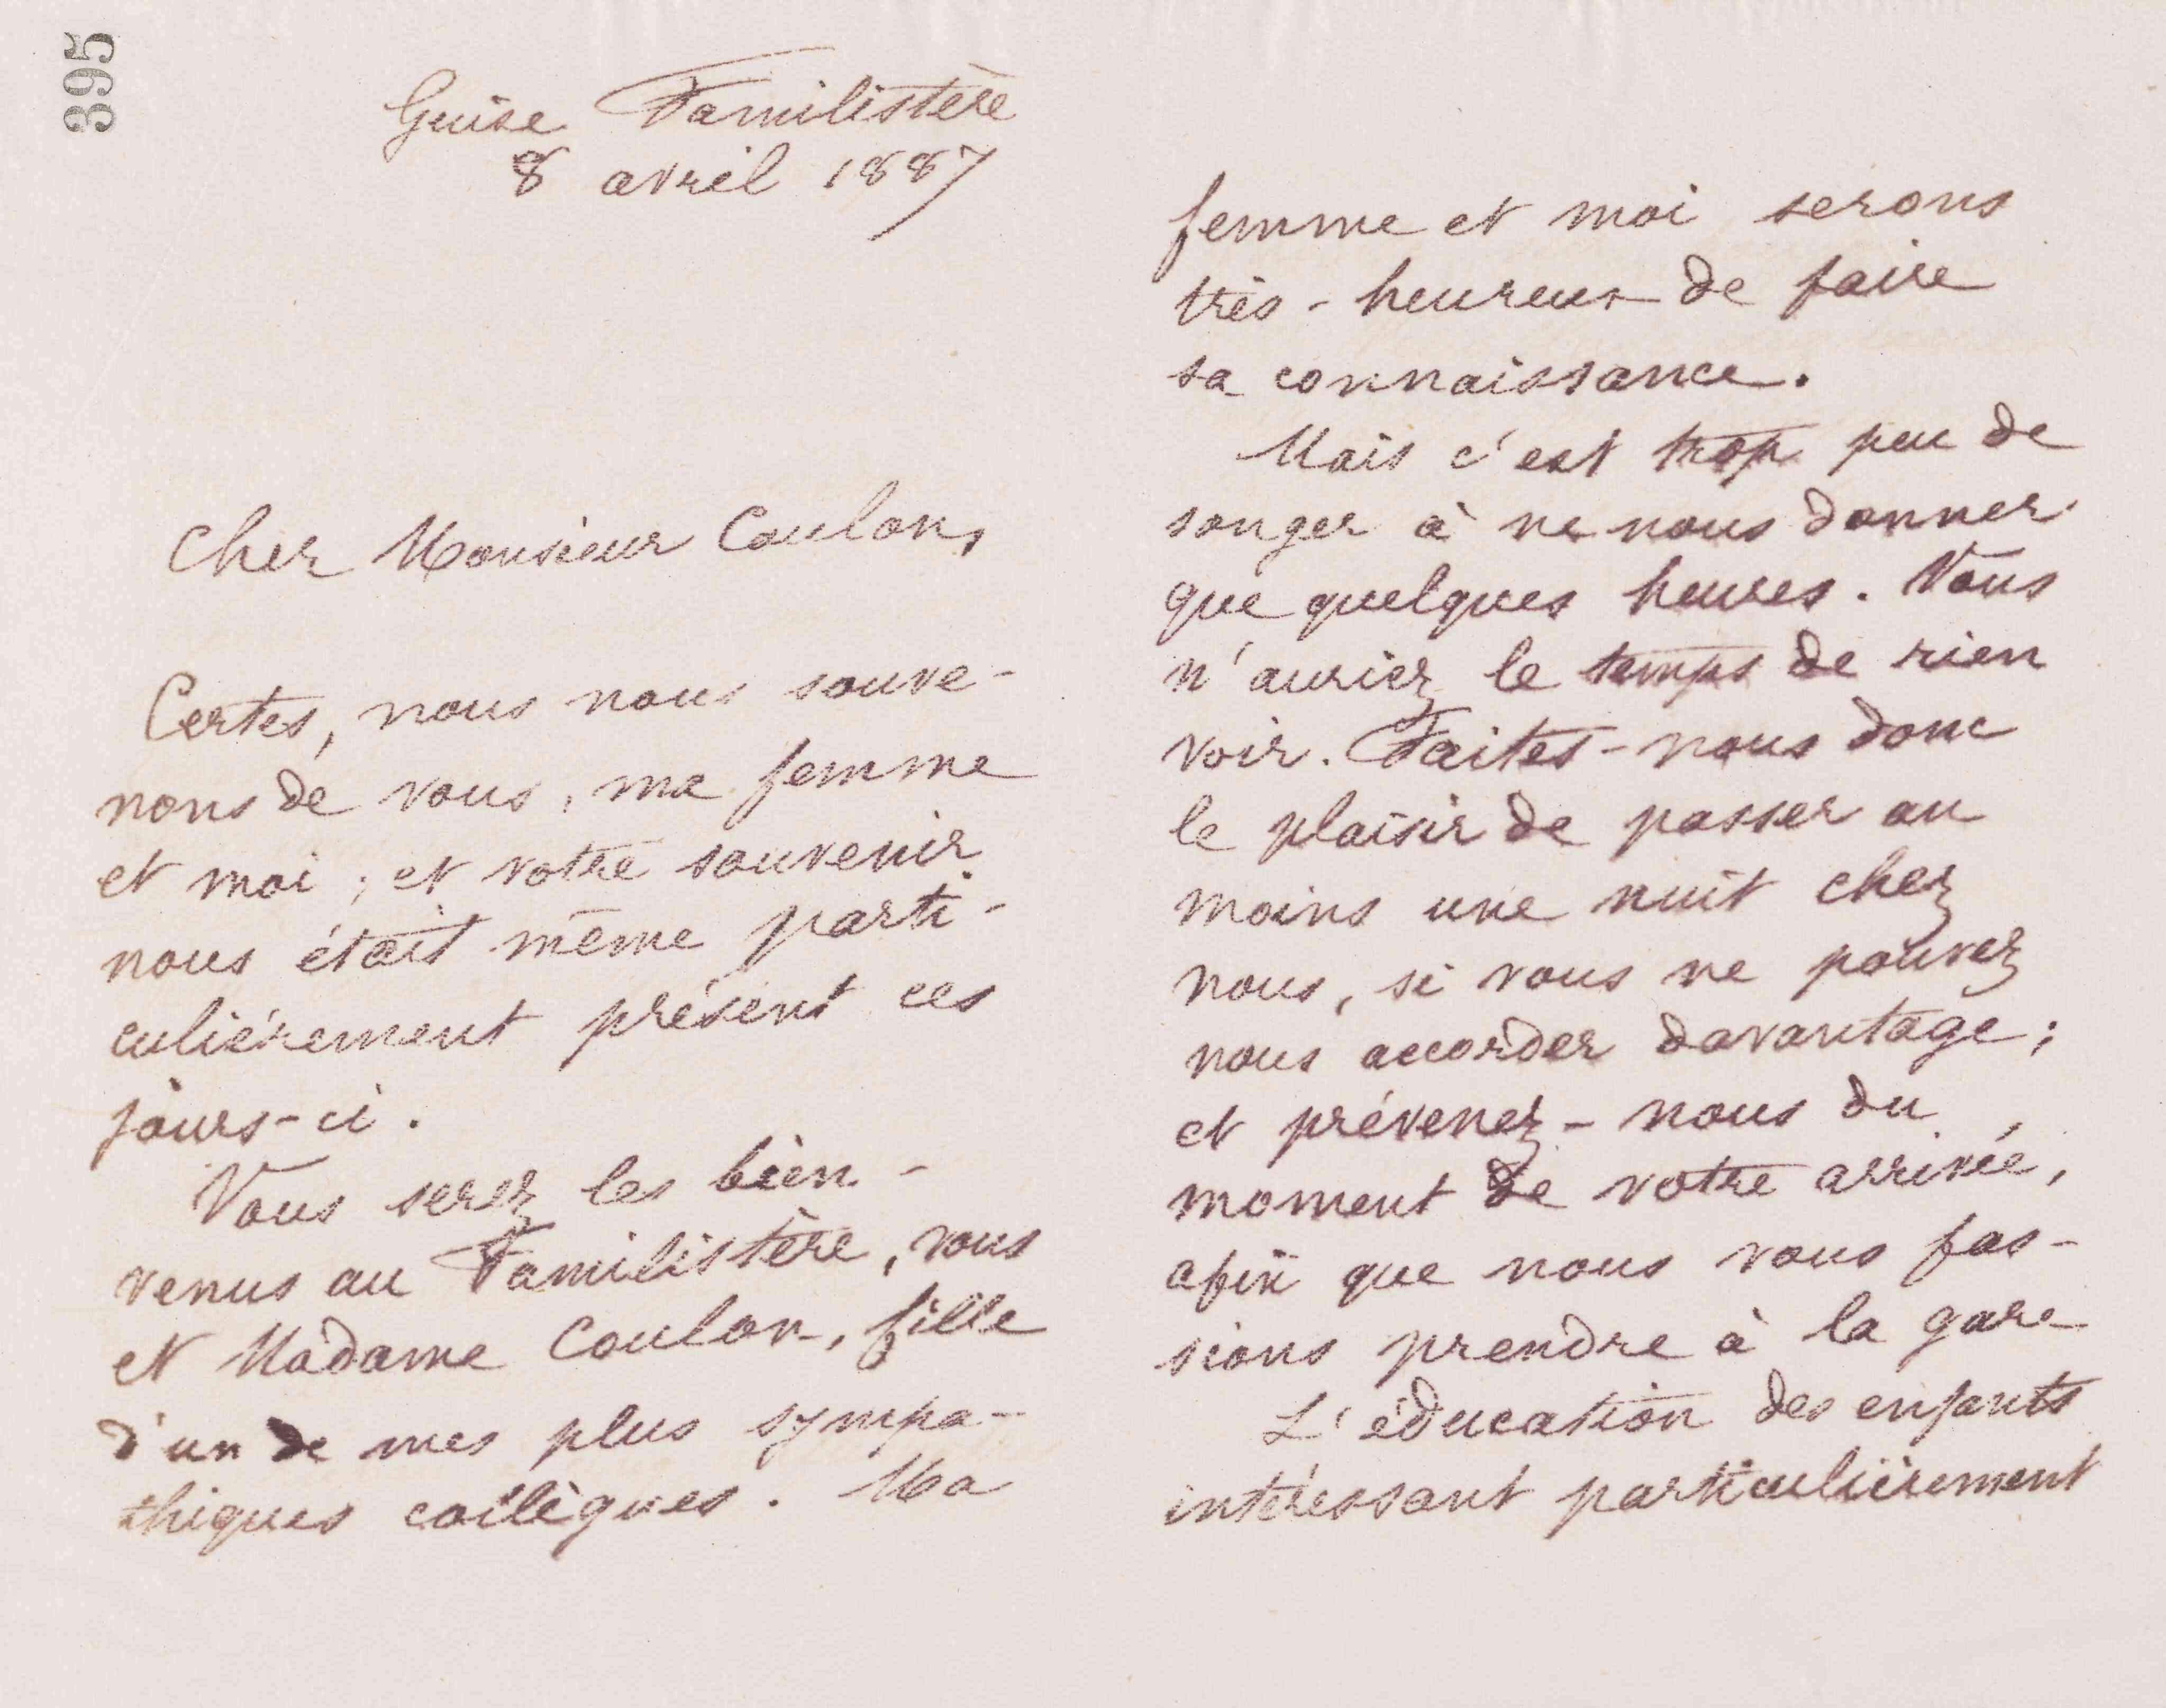 395
Guise Familistère
8 avril 1887
Cher Monsieur Coulon,
Certes, nous nous souve-
nons de vous, ma femme
et moi ; et votre souvenir
nous était même parti-
culièrement présent ces
jours-ci.
Vous serez les bien-
venus au Familistère, vous
et Madame Coulon, fille
d'un de mes plus sympa-
thiques collègues. Ma
femme et moi serons
très-heureux de faire
sa connaissance.
Mais c'est trop peu de
songer à ne nous donner
que quelques heures. Vous
n'auriez le temps de rien
voir. Faites-nous donc
le plaisir de passer au
moins une nuit chez
nous, si vous ne pouvez
nous accorder davantage ;
et prévenez-nous du
moment de votre arrivée,
afin que nous vous fas-
sions prendre à la gare
L'éducation des enfants
intéressant particulièrement